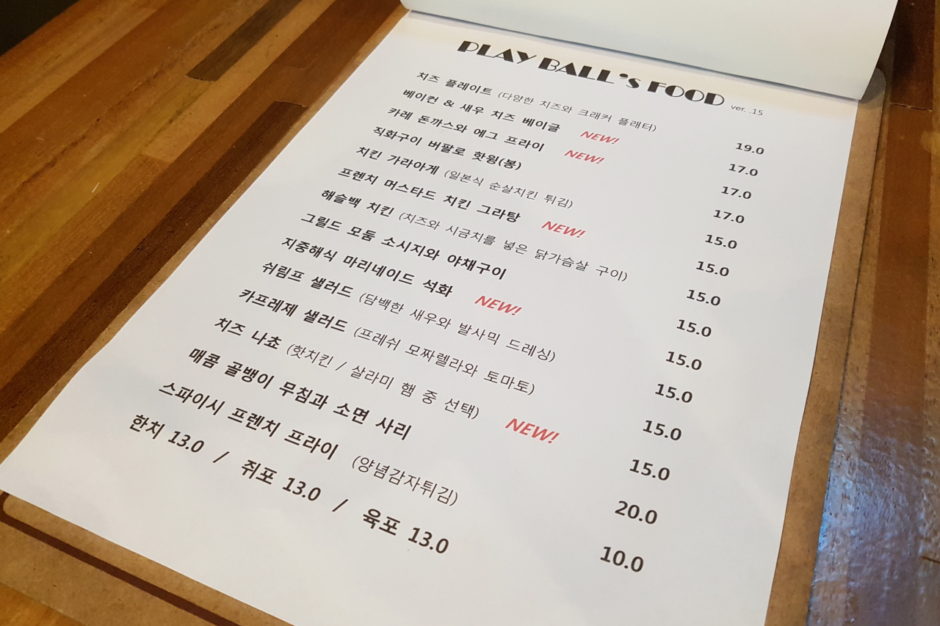 PLAY BALL's FOOD ver. .15
치즈 플레이트 (다양한 치즈와 크래커 플래터) 19.0
베이컨 & 새우 치즈 베이글 NEW! 17.0
카레 돈까스와 에그 프라이 NEW! 17.0
직화구이 버팔로 핫윙(봉) 17.0
치킨 가라아게 (일본식 순살치킨 튀김) 15.0
프렌치 머스타드 치킨 그라탕 NEW! 15.0
해슬백 치킨 (치즈와 시금치를 넣은 닭가슴살 구이) 15.0
그릴드 모둠 소시지와 야채구이 15.0
지중해식 마리네이드 석화 NEW! 15.0
쉬림프 샐러드 (담백한 새우와 발사믹 드레싱) 15.0
카프레제 샐러드 (프레쉬 모짜렐라와 토마토) 15.0
치즈 나쵸 (핫치킨 / 살라미 햄 중 선택) NEW! 15.0
매콤 골뱅이 무침과 소면 사리 20.0
스파이시 프렌치 프라이 (양념감자튀김) 10.0
한치 13.0 / 쥐포 13.0 / 육포 13.0